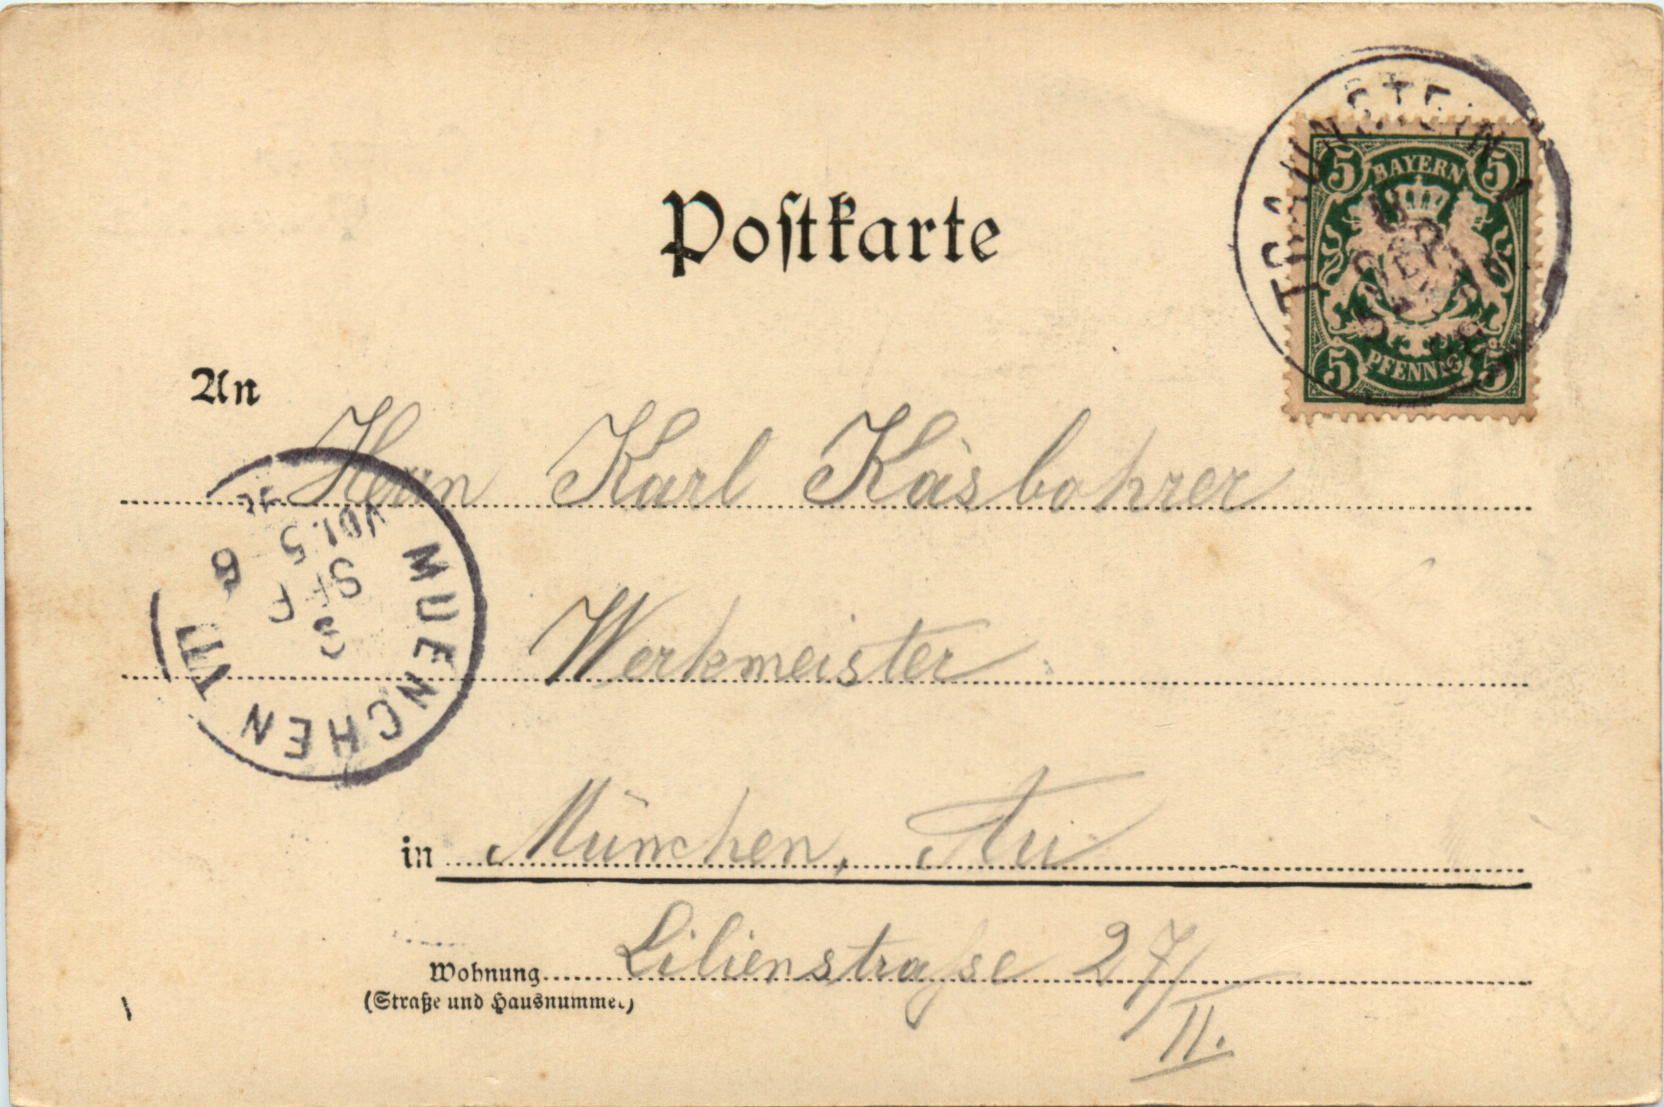 Postkarte
TRAUNSTEIN
5 BAYERN 5
5 PFENNIG 5
An
Herrn Karl Käsbohrer
Werkmeister
in München, Au
Wohnung Lilienstraße 27/
II.
(Straße und Hausnummer)
MUENCHEN VIII
3
SEP
VOI. 5